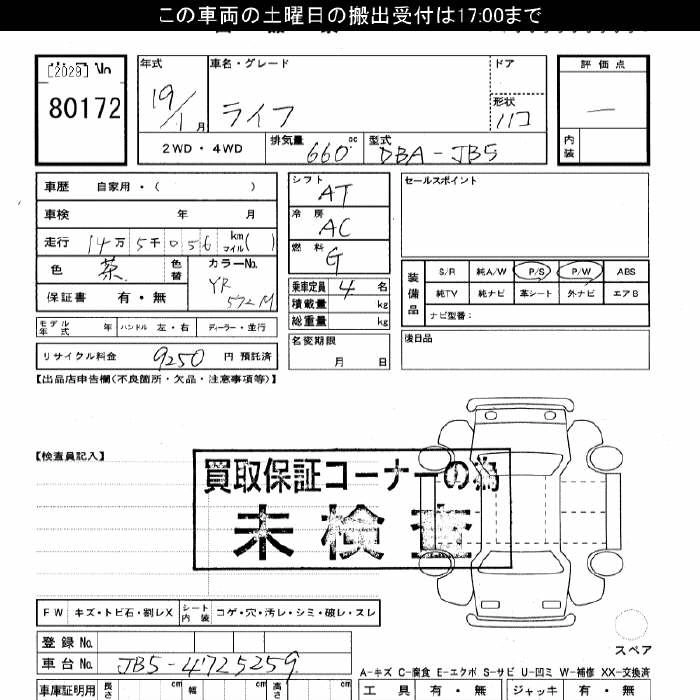 この車両の土曜日の搬出受付は17:00まで
[2029] No
80172
年式
19/1月
車名・グレード
ライフ
ドア
形状
ハコ
評価点
―
内装
2WD・4WD
排気量 660 cc
型式 DBA-JB5
車歴 自家用・( )
車検 年 月
走行 14万5千056 km マイル( )
色 茶 色替
カラーNo. YR572M
保証書 有・無
モデル年式 年 ハンドル 左・右 ディーラー・並行
リサイクル料金 9250 円 預託済
シフト AT
冷房 AC
燃料 G
乗車定員 4 名
積載量 kg
総重量 kg
名変期限
月 日
セールスポイント
装備品
S/R 純A/W P/S P/W ABS
純TV 純ナビ 革シート 外ナビ エアB
ナビ型番:
後日品
【出品店申告欄(不良箇所・欠品・注意事項等)】
【検査員記入】
買取保証コーナーの為
未検査
FW キズ・トビ石・割レX シート内装 コゲ・穴・汚レ・シミ・破レ・スレ
登録No.
車台No. JB5-4725259
スペア
A-キズ C-腐食 E-エクボ S-サビ U-凹ミ W-補修 XX-交換済
車庫証明用 長さ cm 幅 cm 高さ cm
工具 有・無 ジャッキ 有・無